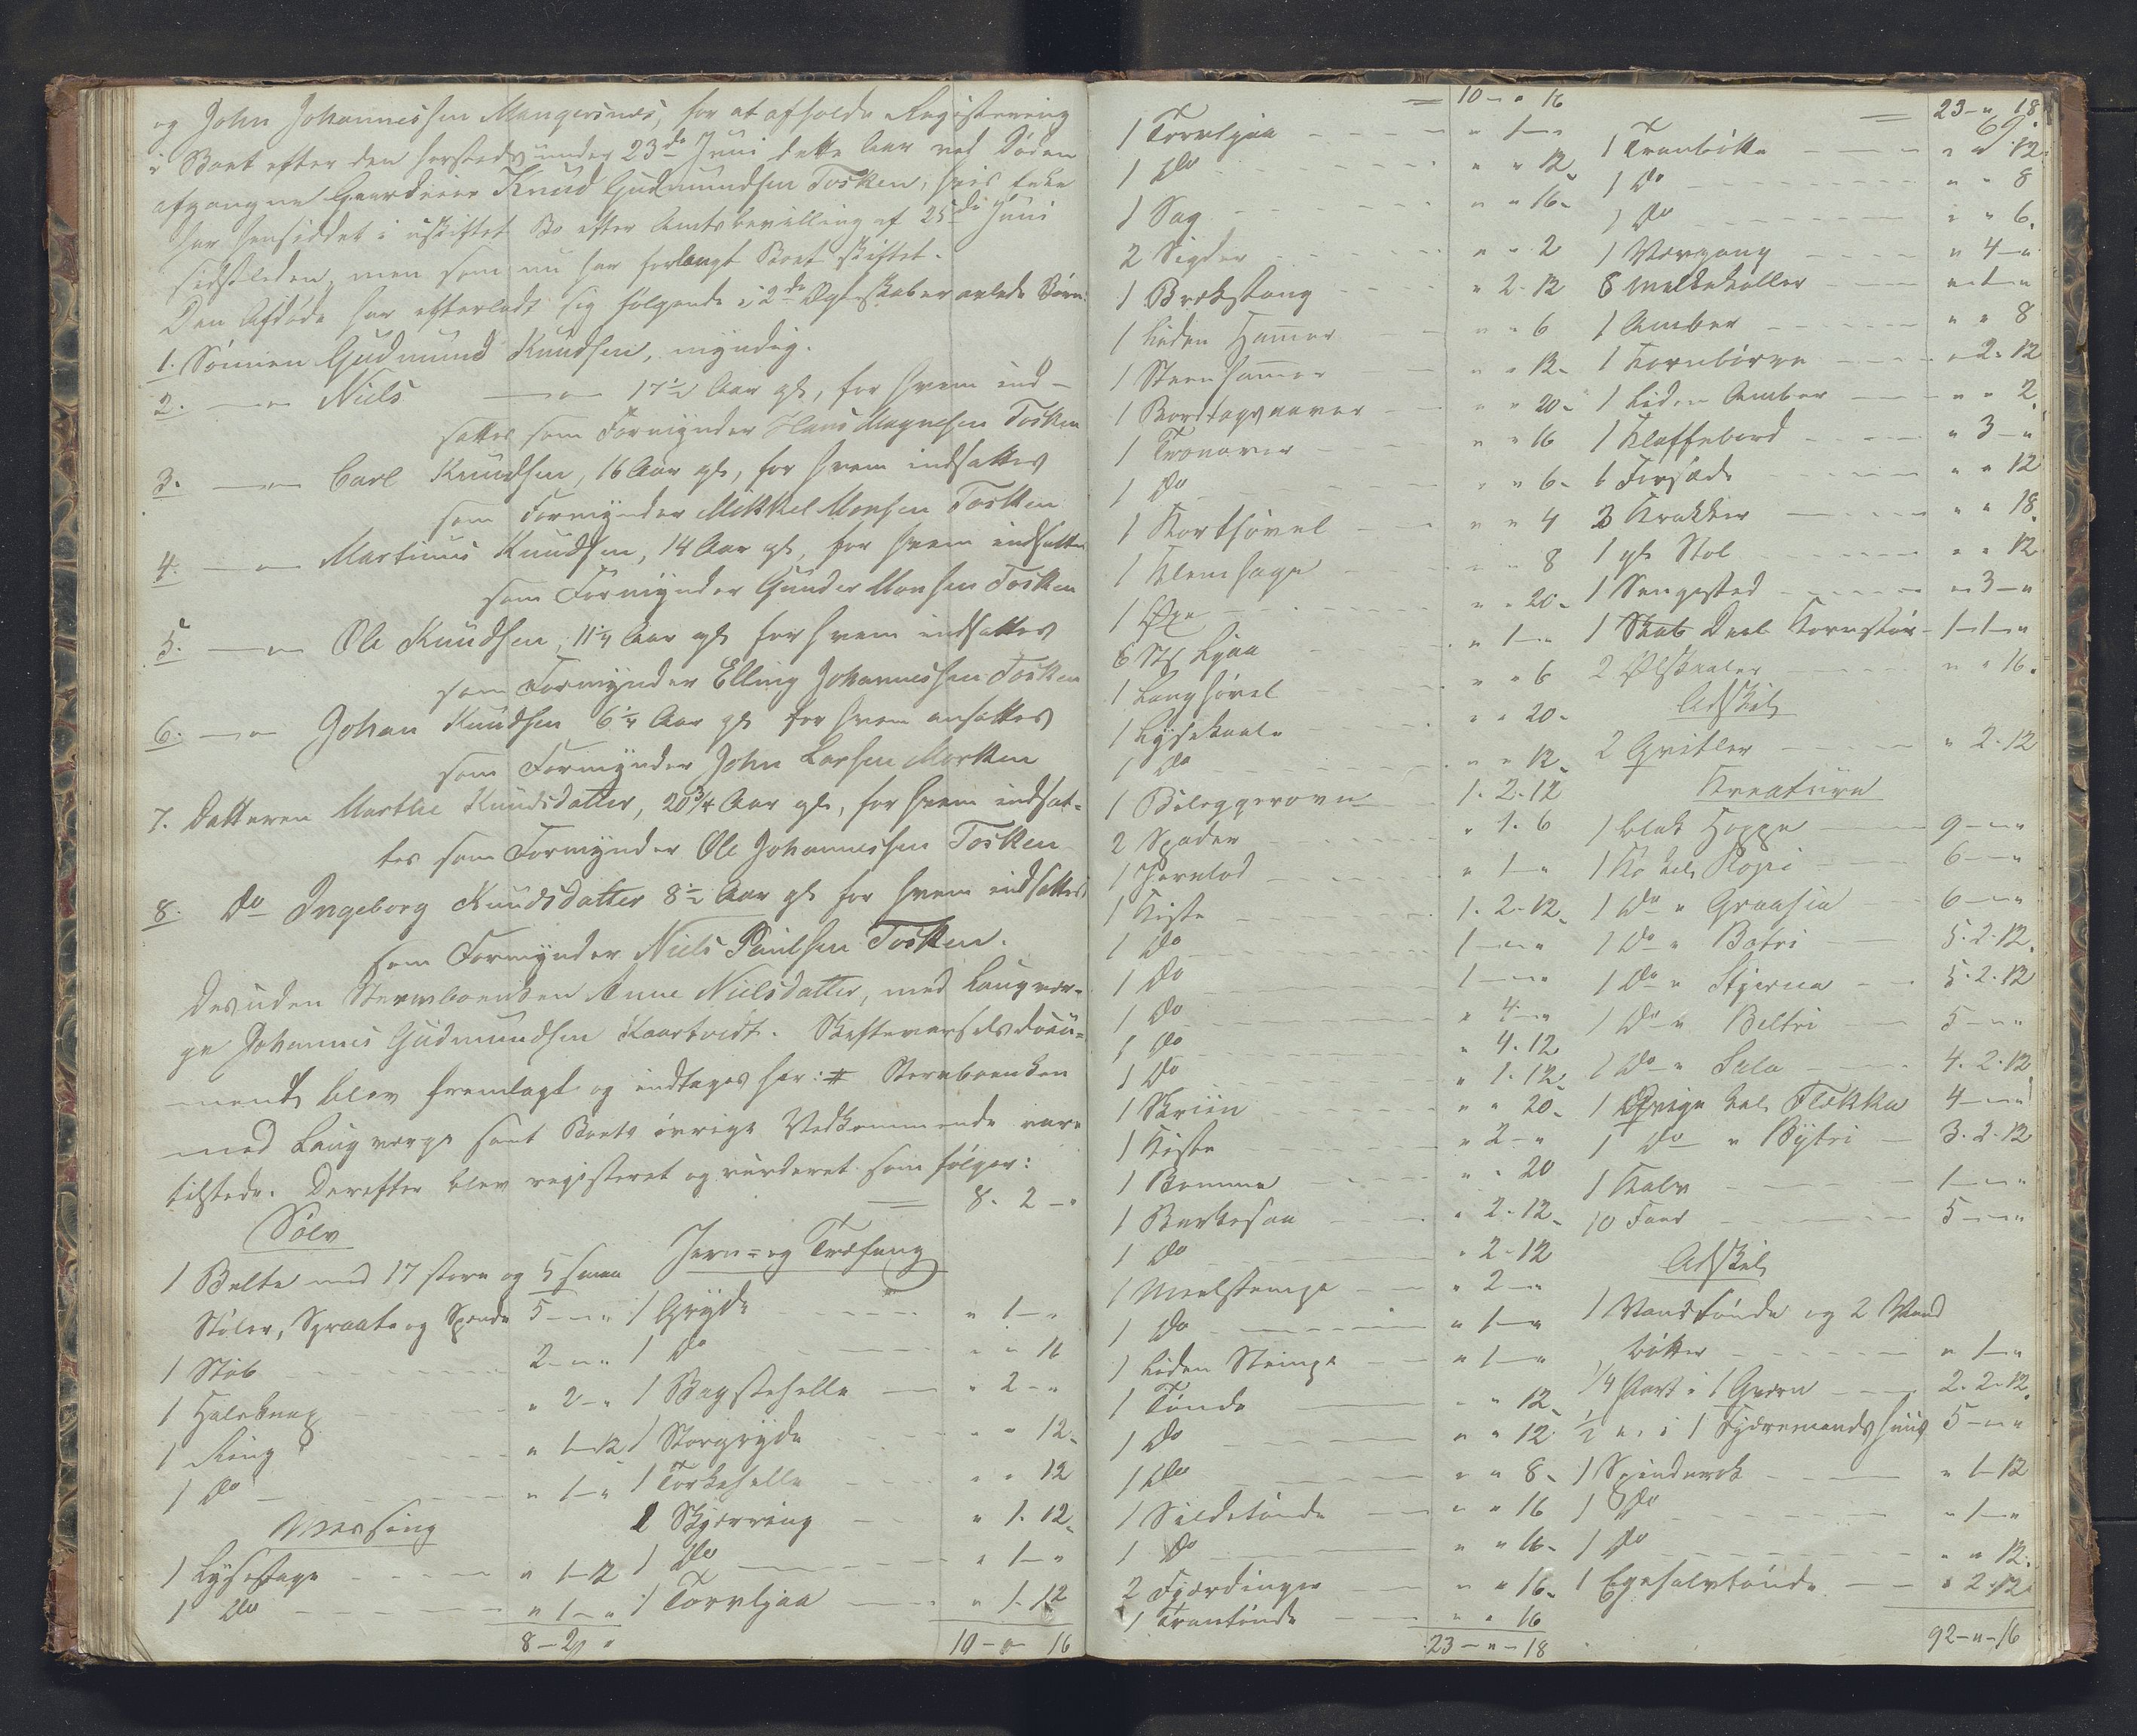 og John Johannessen Mangersnes, for at afholde Registrering
i Boet efter den hersteds under 23de Juni dette Aar ved Døden
afgangne Gaardeier Knud Gudmundsen Tosken, hvis Enke
har hensiddet i uskiftet Bo efter Amtsbevilling af 25de Juni
sidstleden, men som nu har forlangt Boet skiftet.
Den Afdøde har efterladt sig følgende i 2de Ægteskaber avlede Børn:
1. Sønnen Gudmund Knudsen, myndig.
2. —"— Niels —"— 17½ Aar gl, for hvem ind-
sattes som Formynder Hans Magnesen Tosken
3. —"— Carl Knudsen, 16 Aar gl, for hvem indsattes
som Formynder Mikkel Monsen Tosken
4. —"— Martinus Knudsen, 14 Aar gl, for hvem indsattes
som Formynder Gunder Monsen Tosken
5. —"— Ole Knudsen, 11¼ Aar gl for hvem indsattes
som Formynder Elling Johannessen Tosken
6. —"— Johan Knudsen 6¼ Aar gl for hvem ansattes
som Formynder John Larsen Marken
7. Datteren Marthe Knudsdatter, 20¾ Aar gl, for hvem indsat-
tes som Formynder Ole Johannessen Tosken
8. Do Ingeborg Knudsdatter 8½ Aar gl for hvem indsattes
som Formynder Niels Paulsen Tosken.
Desuden Stervboenken Anne Nielsdatter, med Laugvær-
ge Johannes Gudmundsen Kaartvedt. Skiftevarselsdocu-
ment blev fremlagt og indtages her: # Stervboenken
med Laugværge samt Boets øvrige Vedkommende vare
tilstede. Derefter blev registeret og vurderet som følger:
Sølv
1 Belte med 17 store og 5 smaa
Støler, Spraate og Spende 5 — " — "
1 Stob 2 — " — "
1 Halsknap " 2 — "
1 Ring " 1 — 12
1 Do " 1 — "
Messing
1 Lysestage " 1 — 12
1 Do " 1 — "
8 — 2 — "
= 8. 2 — "
Jern- og Træfang
1 Gryde " 1 — "
1 Do " " 16
1 Bagstehelle " 2 — "
1 Storgryde " " 12
1 Tørkehelle " " 12
2 Skjærring " 1. 12
1 Do " 1 — "
1 Torvljaa " 1. 12
10 — " — 16
= 10 — " 16
1 Torvljaa " 1 — "
1 Do " " 12
1 Sag " " 16
2 Sigder " " 2
1 Brækstang " 2. 12
1 liden Hammer " " 6
1 Steenhammer " " 12
1 Bordtagnaver " " 20
1 Tronaver " " 16
1 Do " " 6
1 Korthøvel " " 4
1 Klemhage " " 8
1 Øxe " " 20
6 Stk Ljaa " 1 — "
1 Langhøvel " " 6
1 Lysekaale " " 20
1 Do " " 12
1 Bilæggerovn 1. 2. 12
2 Spader " 1. 6
1 Jernlod " 1 — "
1 Kiste 1. 2. 12
1 Do 1 — " — "
1 Do 1 — " — "
1 Do " 4 — "
1 Do " 4. 12
1 Do " 1. 12
1 Skriin " " 20
1 Kiste " 2 — "
1 Bomme " " 20
1 Barkesaa " 2. 12
1 Do " 2. 12
1 Meelstampe " 2 — "
1 Do " 1 — "
1 liden Stampe " 1 — "
1 Tønde " " 12
1 Do " " 12
1 Do " " 8
1 Sildetønde " " 16
1 Do " " 16
2 Fjerdinger " " 16
1 Trantønde " " 16
23 — " — 18
69.
= 23 — " 18
1 Tranbøtte " " 12
1 Do " " 8
1 Do " " 6
1 Vævgang " 4 — "
8 Melkekoller " 1 — "
1 Amber " " 8
1 Kornbørge " 2. 12
1 liden Amber " " 2
1 Klaffebord " 3 — "
6 Forsæde " " 12
3 Krakker " " 18
1 gl Stol " " 12
1 Sengested " 3 — "
1 Stab Deel Kornstør 1 — 1 — "
2 Ølskaaler " " 16
Adskil
2 Gritler " 2. 12
Kreature
1 blak Hoppe 9 — " — "
1 Ko kal Ropi 6 — " — "
1 Do " Graasia 6 — " — "
1 Do " Botri 5. 2. 12
1 Do " Stjerna 5. 2. 12
1 Do " Beltri 5 — " — "
1 Do " Sala 4. 2. 12
1 Qvige kal Flekka 4 — " — "
1 Do " Bytri 3. 2. 12
1 Kalv 1 — " — "
10 Faar 5 — " — "
Adskil
1 Vandtønde og 2 Vand
bøtter " 1 — "
¼ Part i 1 Qværn 2. 2. 12
½ " i 1 Fjæremandshuus 5 — " — "
1 Spinderok " 1 — 12
1 Do " 1 — "
1 Do " " 12
1 Egehalvtønde " 2. 12
92 — " — 16